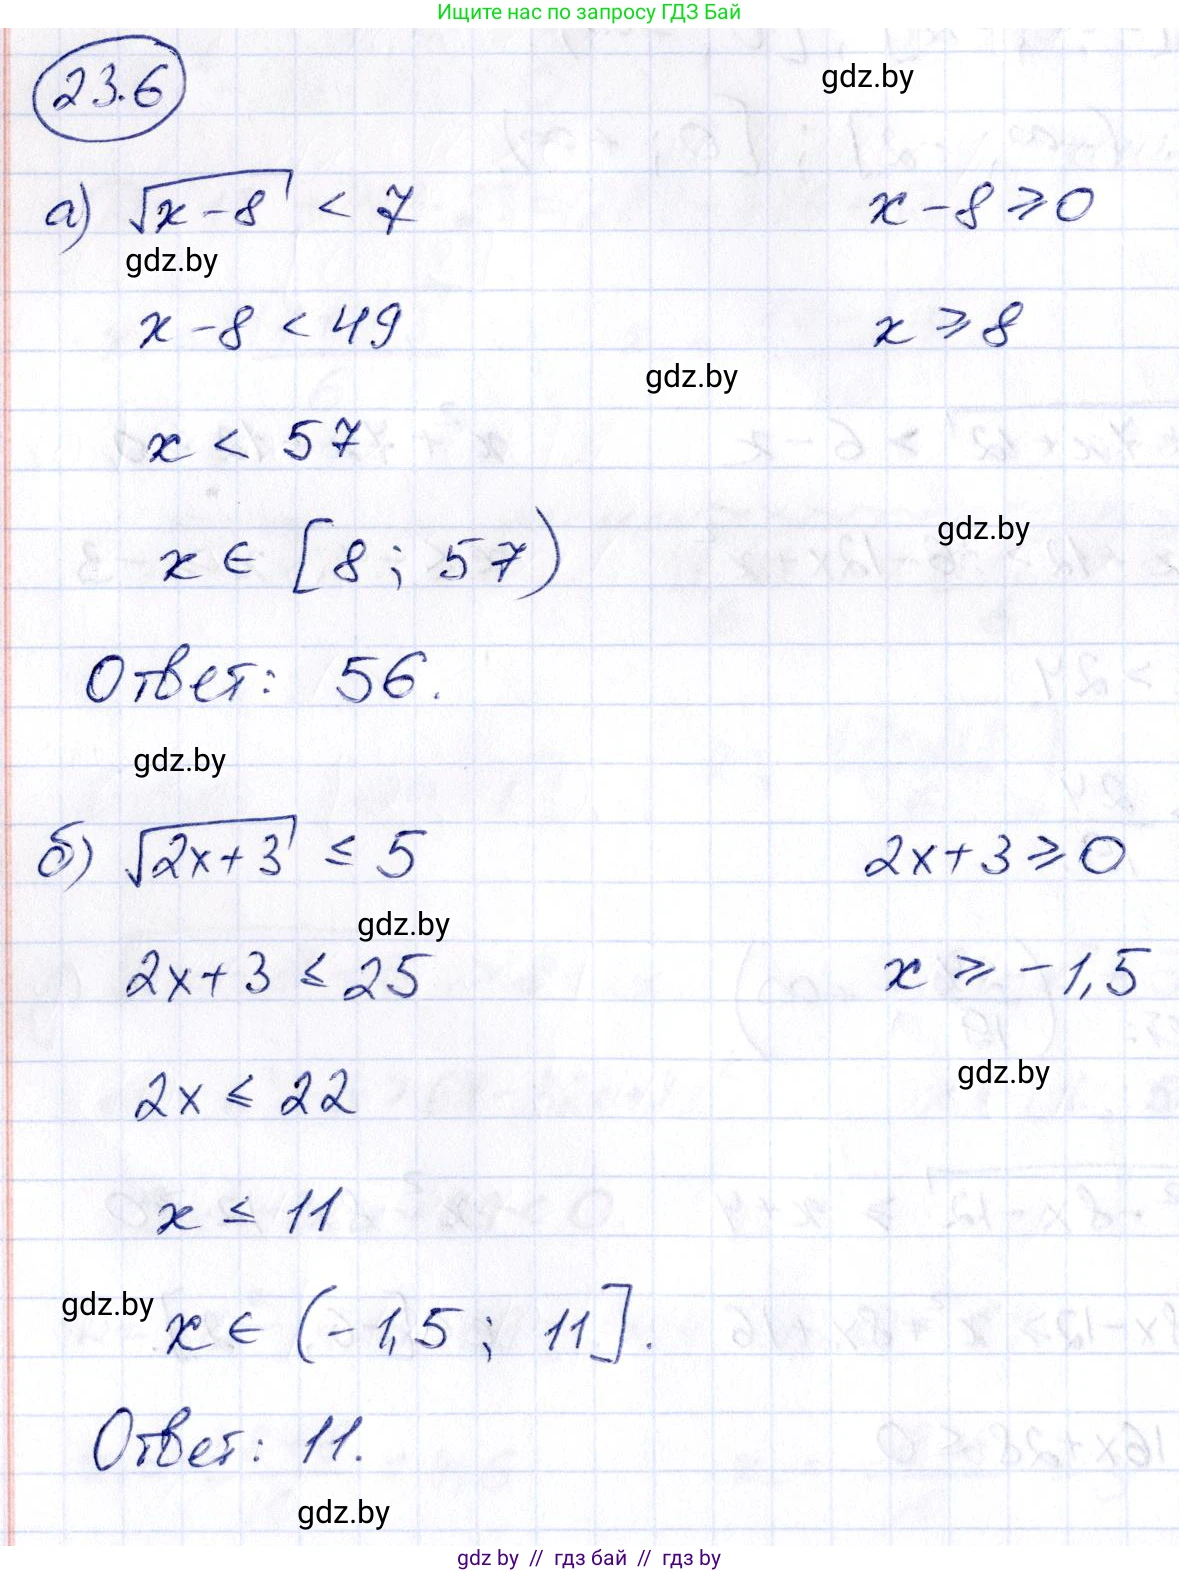 Ищите нас по запросу ГДЗ Бай
23.6
gdz.by
а) √x-8 < 7 x-8 ⩾ 0
gdz.by
x-8 < 49 x ⩾ 8
gdz.by
x < 57
gdz.by
x ∈ [8; 57)
Ответ: 56.
gdz.by
б) √2x+3 ≤ 5 2x+3 ⩾ 0
gdz.by
2x+3 ≤ 25 x ⩾ -1,5
gdz.by
2x ≤ 22
x ≤ 11
gdz.by
x ∈ (-1,5; 11].
Ответ: 11.
gdz.by
gdz by // гдз бай // гдз by